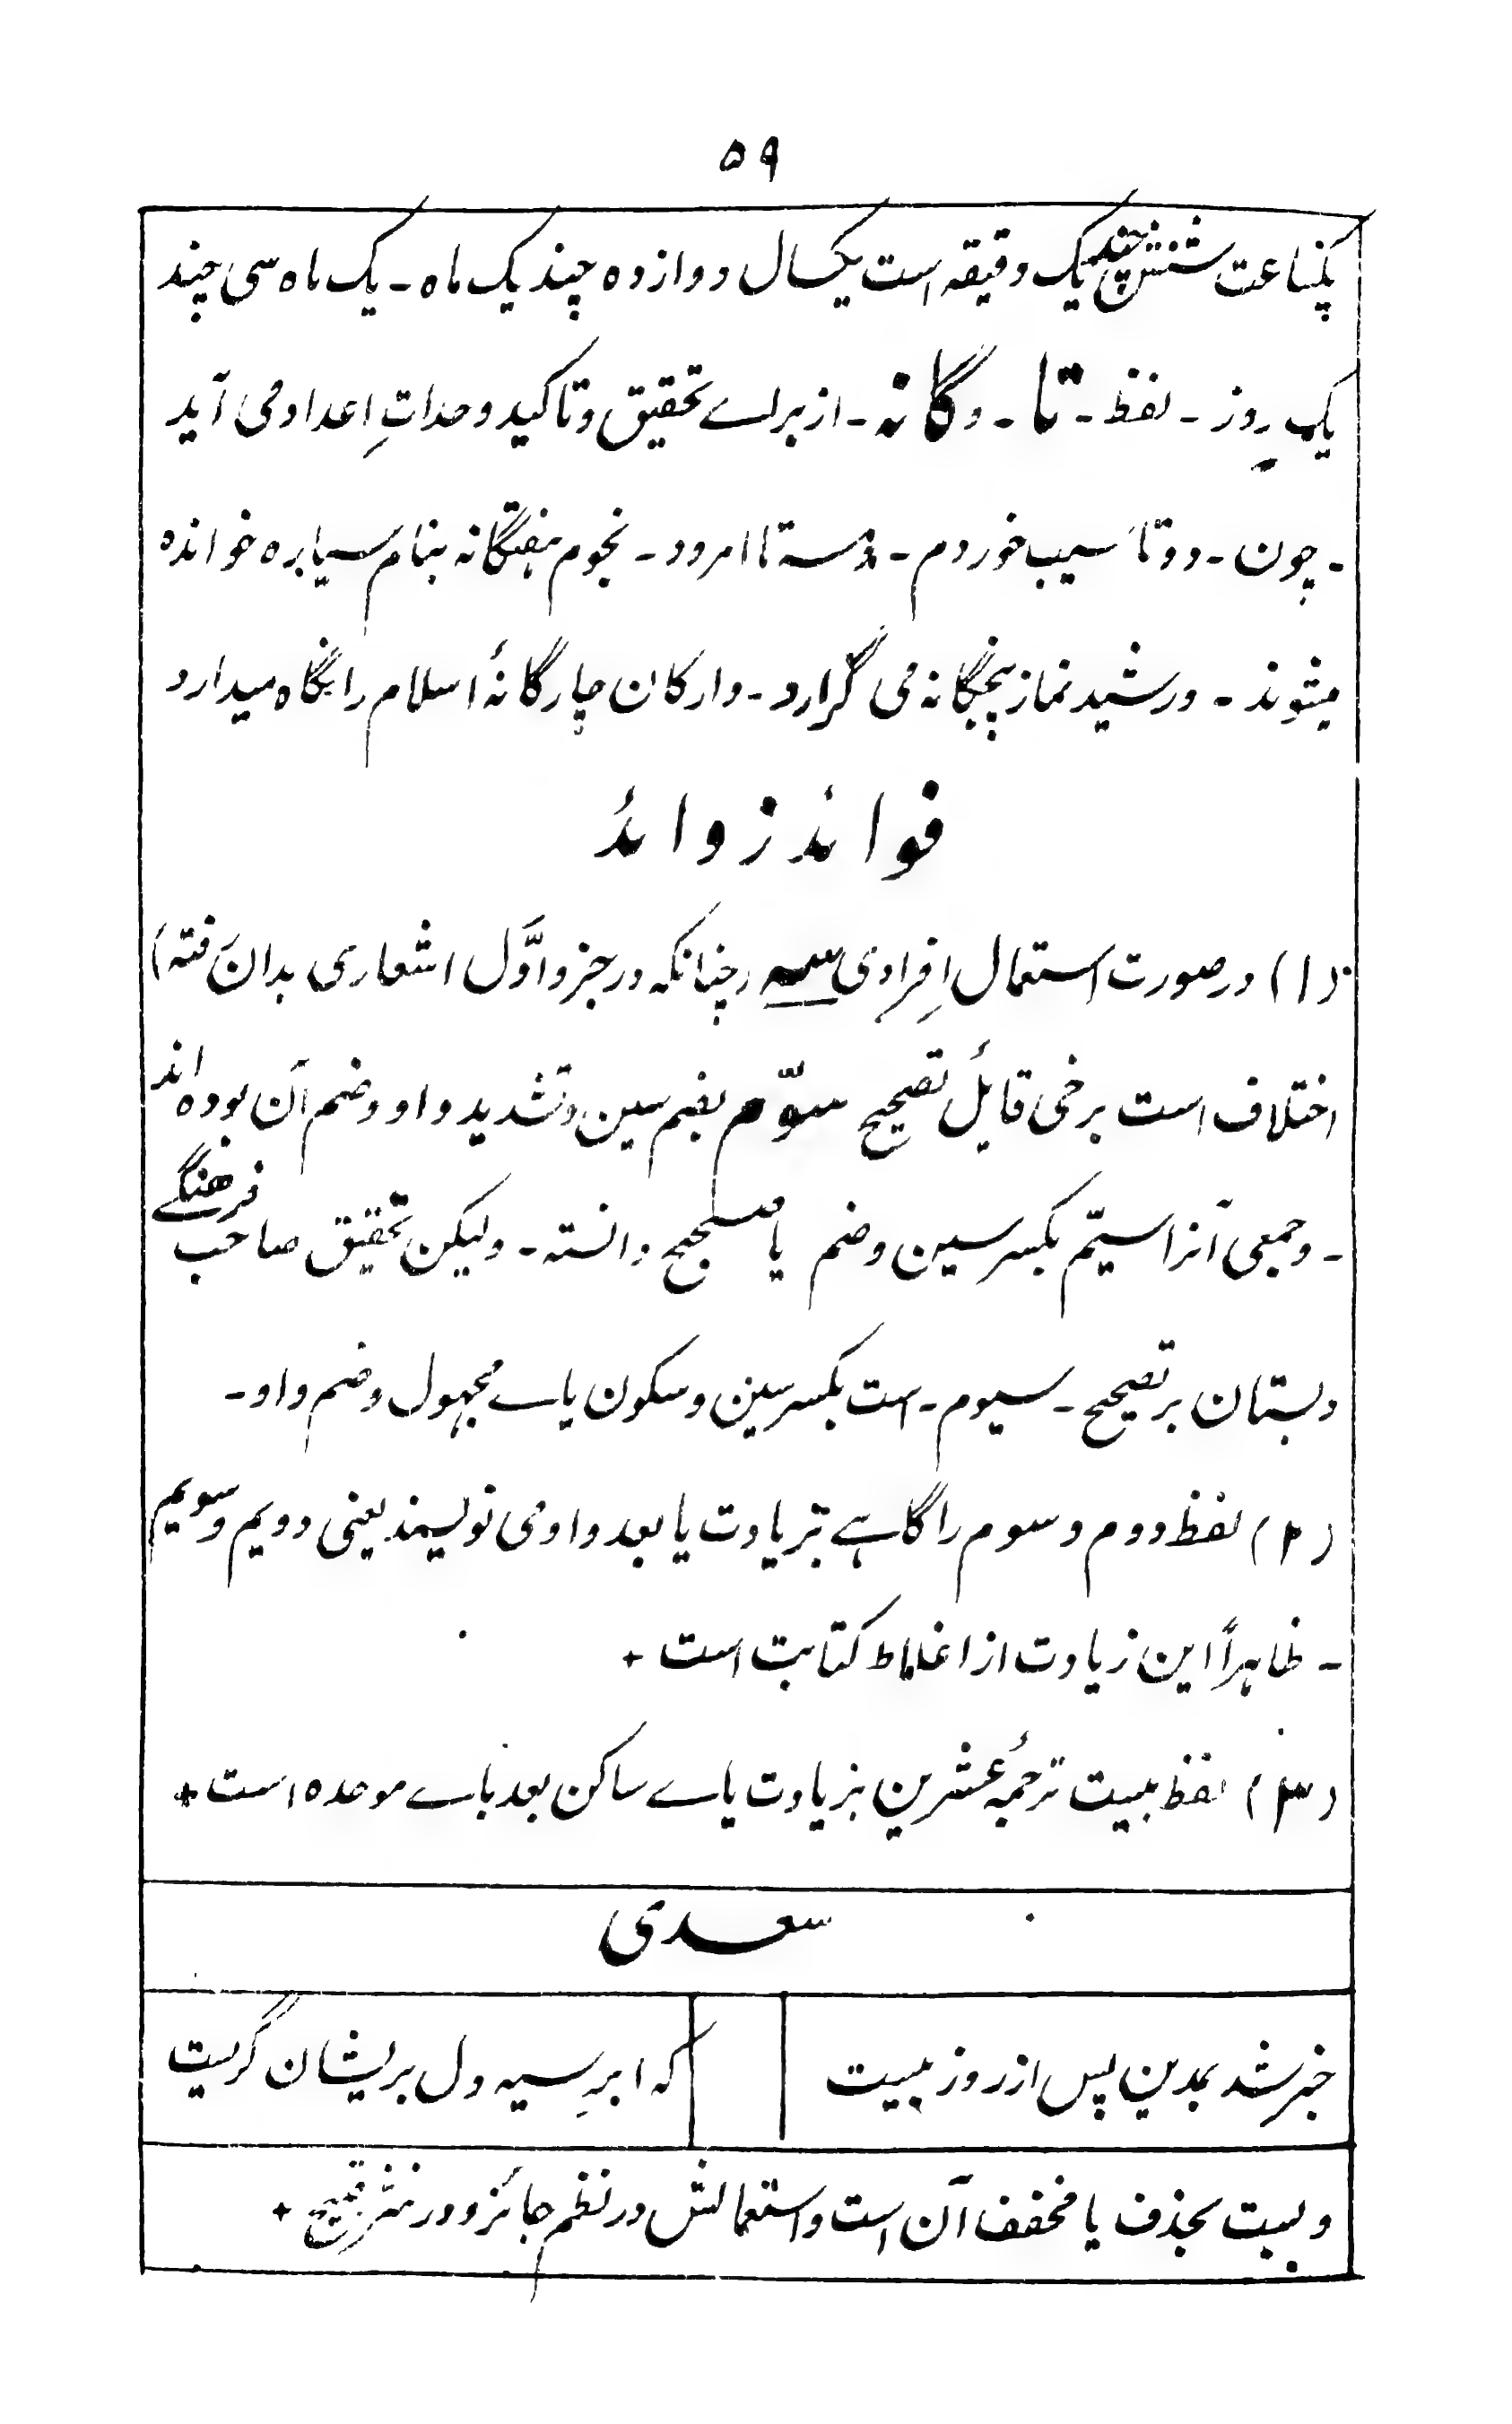 ۵۹
یکساعت شصت چند یک دقیقه است یکسال دوازده چند یک ماه - یک ماه سی چند
یک روز - لفظ - تا - و گانه - از برائے تحقیق و تاکید وحداتِ اعداد می آید
- چون - دو تا سیب خوردم - و سه تا امرود - نجوم هفتگانه بنام سیاره خوانده
میشوند - ورشید نماز پنجگانه می گزارد - و ارکان چارگانهٔ اسلام را نگاه میدارد
فوائد زوائد
(۱) در صورت استعمال اِفرادی سه (چنانکه در جزو اوّل اشعاری بدان رفته)
اختلاف است برخی قایلِ تصحیح سوّم بضم سین و تشدید واو و ضم آن بوده اند
- و جمعی آنرا سیّم بکسر سین و ضم یا صحیح دانسته - ولیکن تحقیق صاحب فرهنگے
دبستان بر تصحیح - سیوم - است بکسر سین و سکون یاے مجهول و ضم واو -
(۲) لفظ دوم و سوم را گاہے بزیادت یا بعد واو می نویسند یعنی دویم و سویم
- ظاہراً این زیادت از اغلاط کتابت است +
(۳) لفظ بیست ترجمهٔ عشرین بزیادت یاے ساکن بعد باے موحده است +
سعدی
خبر شد بمدین پس از روز بیست
که ابرِ سیه دل بریشان گریست
و بست بحذف یا مخفف آن است و استعمالش در نظم جائز و در نثر قبیح +